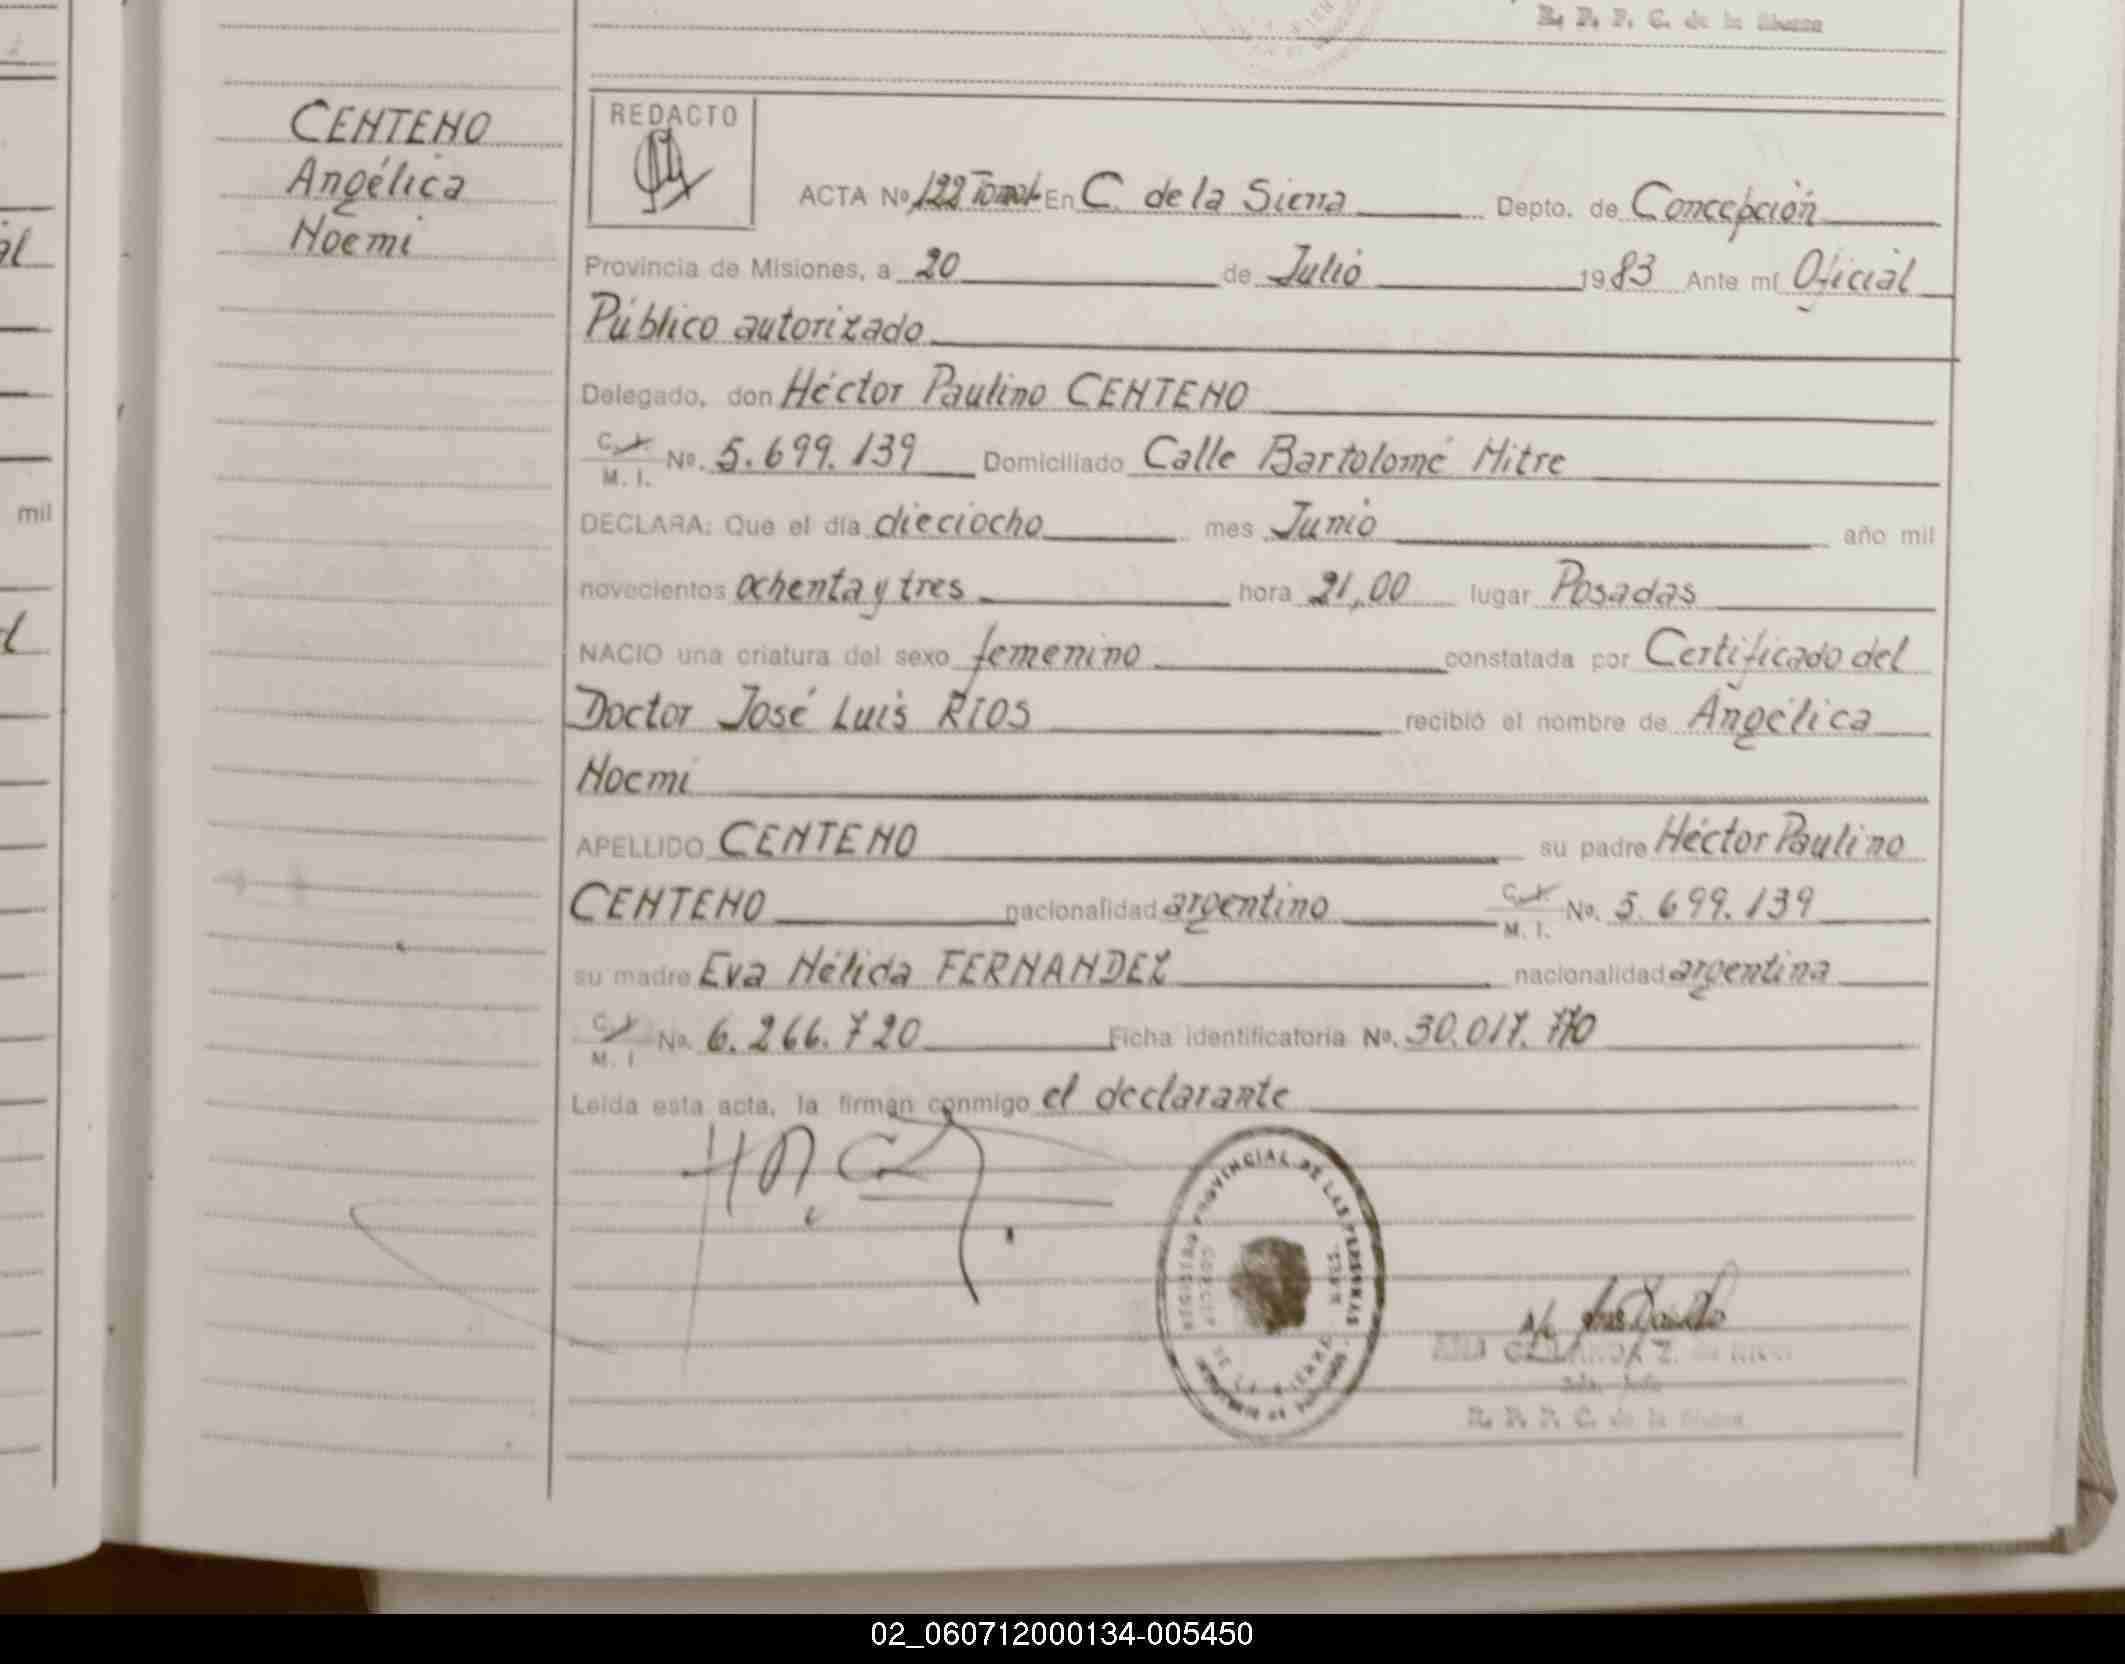 R. P. P. C. de la Sierra
CENTENO
Angélica
Noemi
REDACTO
ACTA Nº 122 Tomo I En C. de la Sierra Depto. de Concepción
Provincia de Misiones, a 20 de Julio 1983 Ante mí Oficial
Público autorizado
Delegado, don Héctor Paulino CENTENO
C. I. M. I. Nº. 5.699.139 Domiciliado Calle Bartolomé Mitre
DECLARA: Que el día dieciocho mes Junio año mil
novecientos ochenta y tres hora 21,00 lugar Posadas
NACIO una criatura del sexo femenino constatada por Certificado del
Doctor José Luis RIOS recibió el nombre de Angélica
Noemi
APELLIDO CENTENO su padre Héctor Paulino
CENTENO nacionalidad argentino C. I. M. I. Nº. 5.699.139
su madre Eva Nélida FERNANDEZ nacionalidad argentina
C. I. M. I. Nº. 6.266.720 Ficha identificatoria Nº. 30.017.770
Leída esta acta, la firman conmigo el declarante
REGISTRO PROVINCIAL DE LAS PERSONAS
DE LA SIERRA
R. P. P. C. de la Sierra
mil
02_060712000134-005450